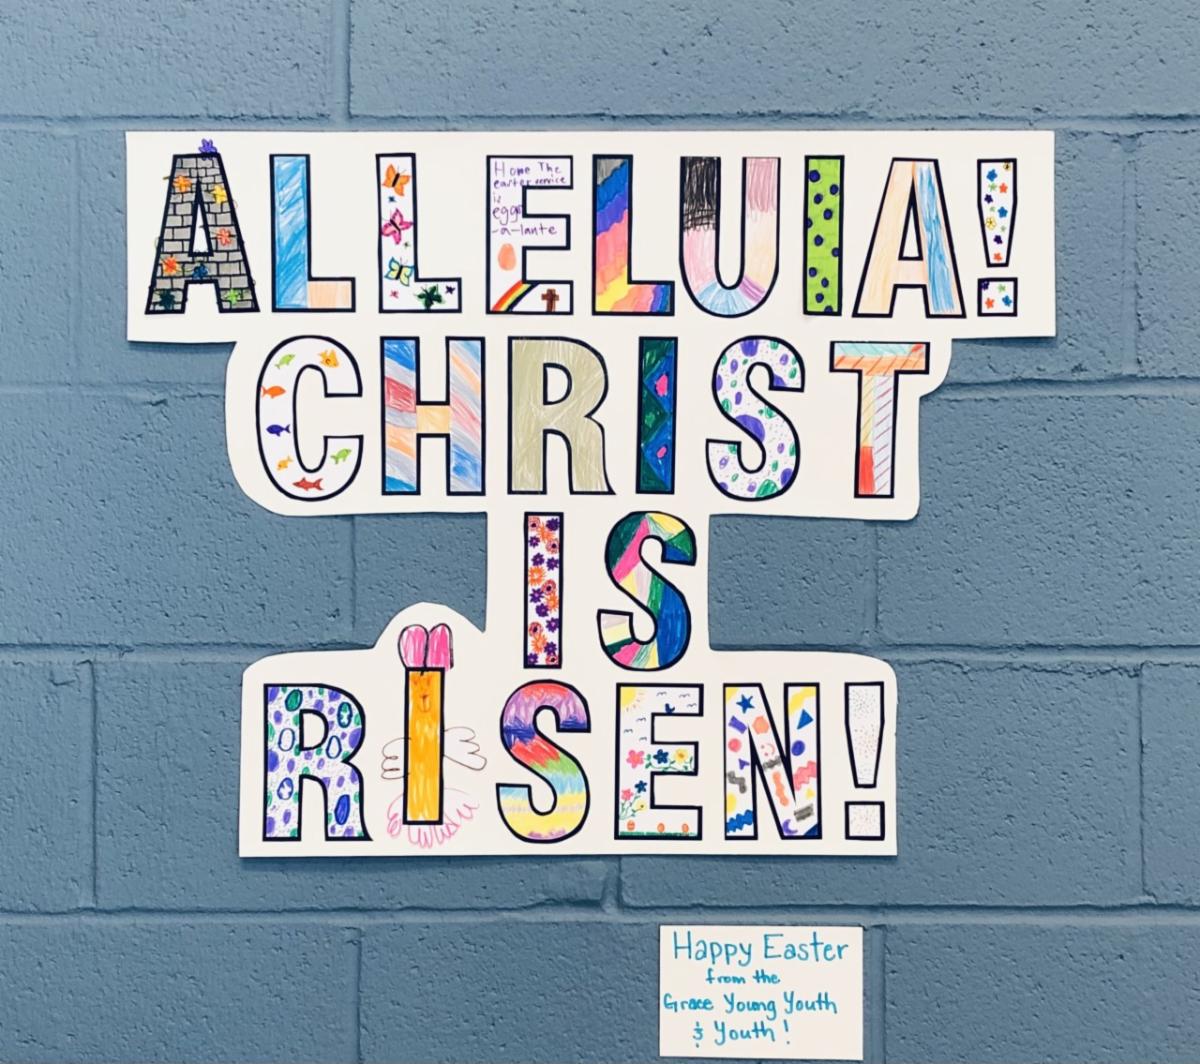 ALLELUIA!
Hope The
easter service
is
eggs
-a-lante
CHRIST
IS
RISEN!
Happy Easter
from the
Grace Young Youth
& Youth!